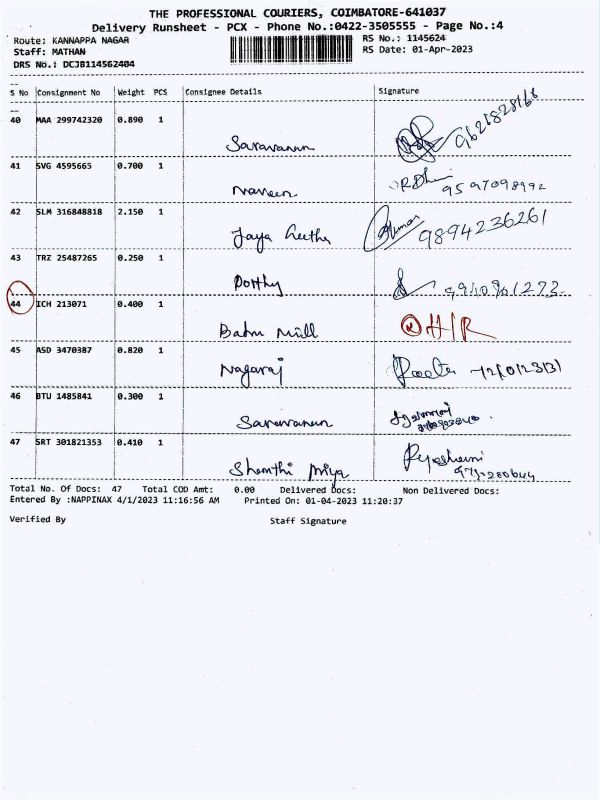 THE PROFESSIONAL COURIERS, COIMBATORE-641037
Delivery Runsheet - PCX - Phone No.:0422-3505555 - Page No.:4
Route: KANNAPPA NAGAR RS No.: 1145624
Staff: MATHAN RS Date: 01-Apr-2023
DRS No.: DCJB114562404
S No Consignment No Weight PCS Consignee Details Signature
40 MAA 299742320 0.890 1
Saravanan
41 SVG 4595665 0.700 1
Naveen 9597098992
42 SLM 316848818 2.150 1
Jaya Geetha 9894236261
43 TRZ 25487265 0.250 1
Dorthy
44 ICH 213071 0.400 1
Babu Mill H/R
45 ASD 3470387 0.820 1
Nagaraj
46 BTU 1485841 0.300 1
Saravanan
47 SRT 301821353 0.410 1
Shanthi Priya
Total No. Of Docs: 47 Total COD Amt: 0.00 Delivered Docs: Non Delivered Docs:
Entered By :NAPPINAX 4/1/2023 11:16:56 AM Printed On: 01-04-2023 11:20:37
Verified By Staff Signature